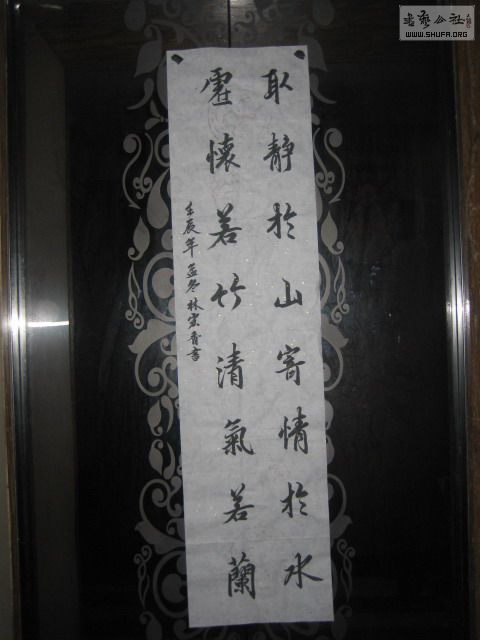 取静於山寄情於水
虚懷若竹清氣若蘭
壬辰年孟冬林宏香書
書藝公社
WWW.SHUFA.ORG